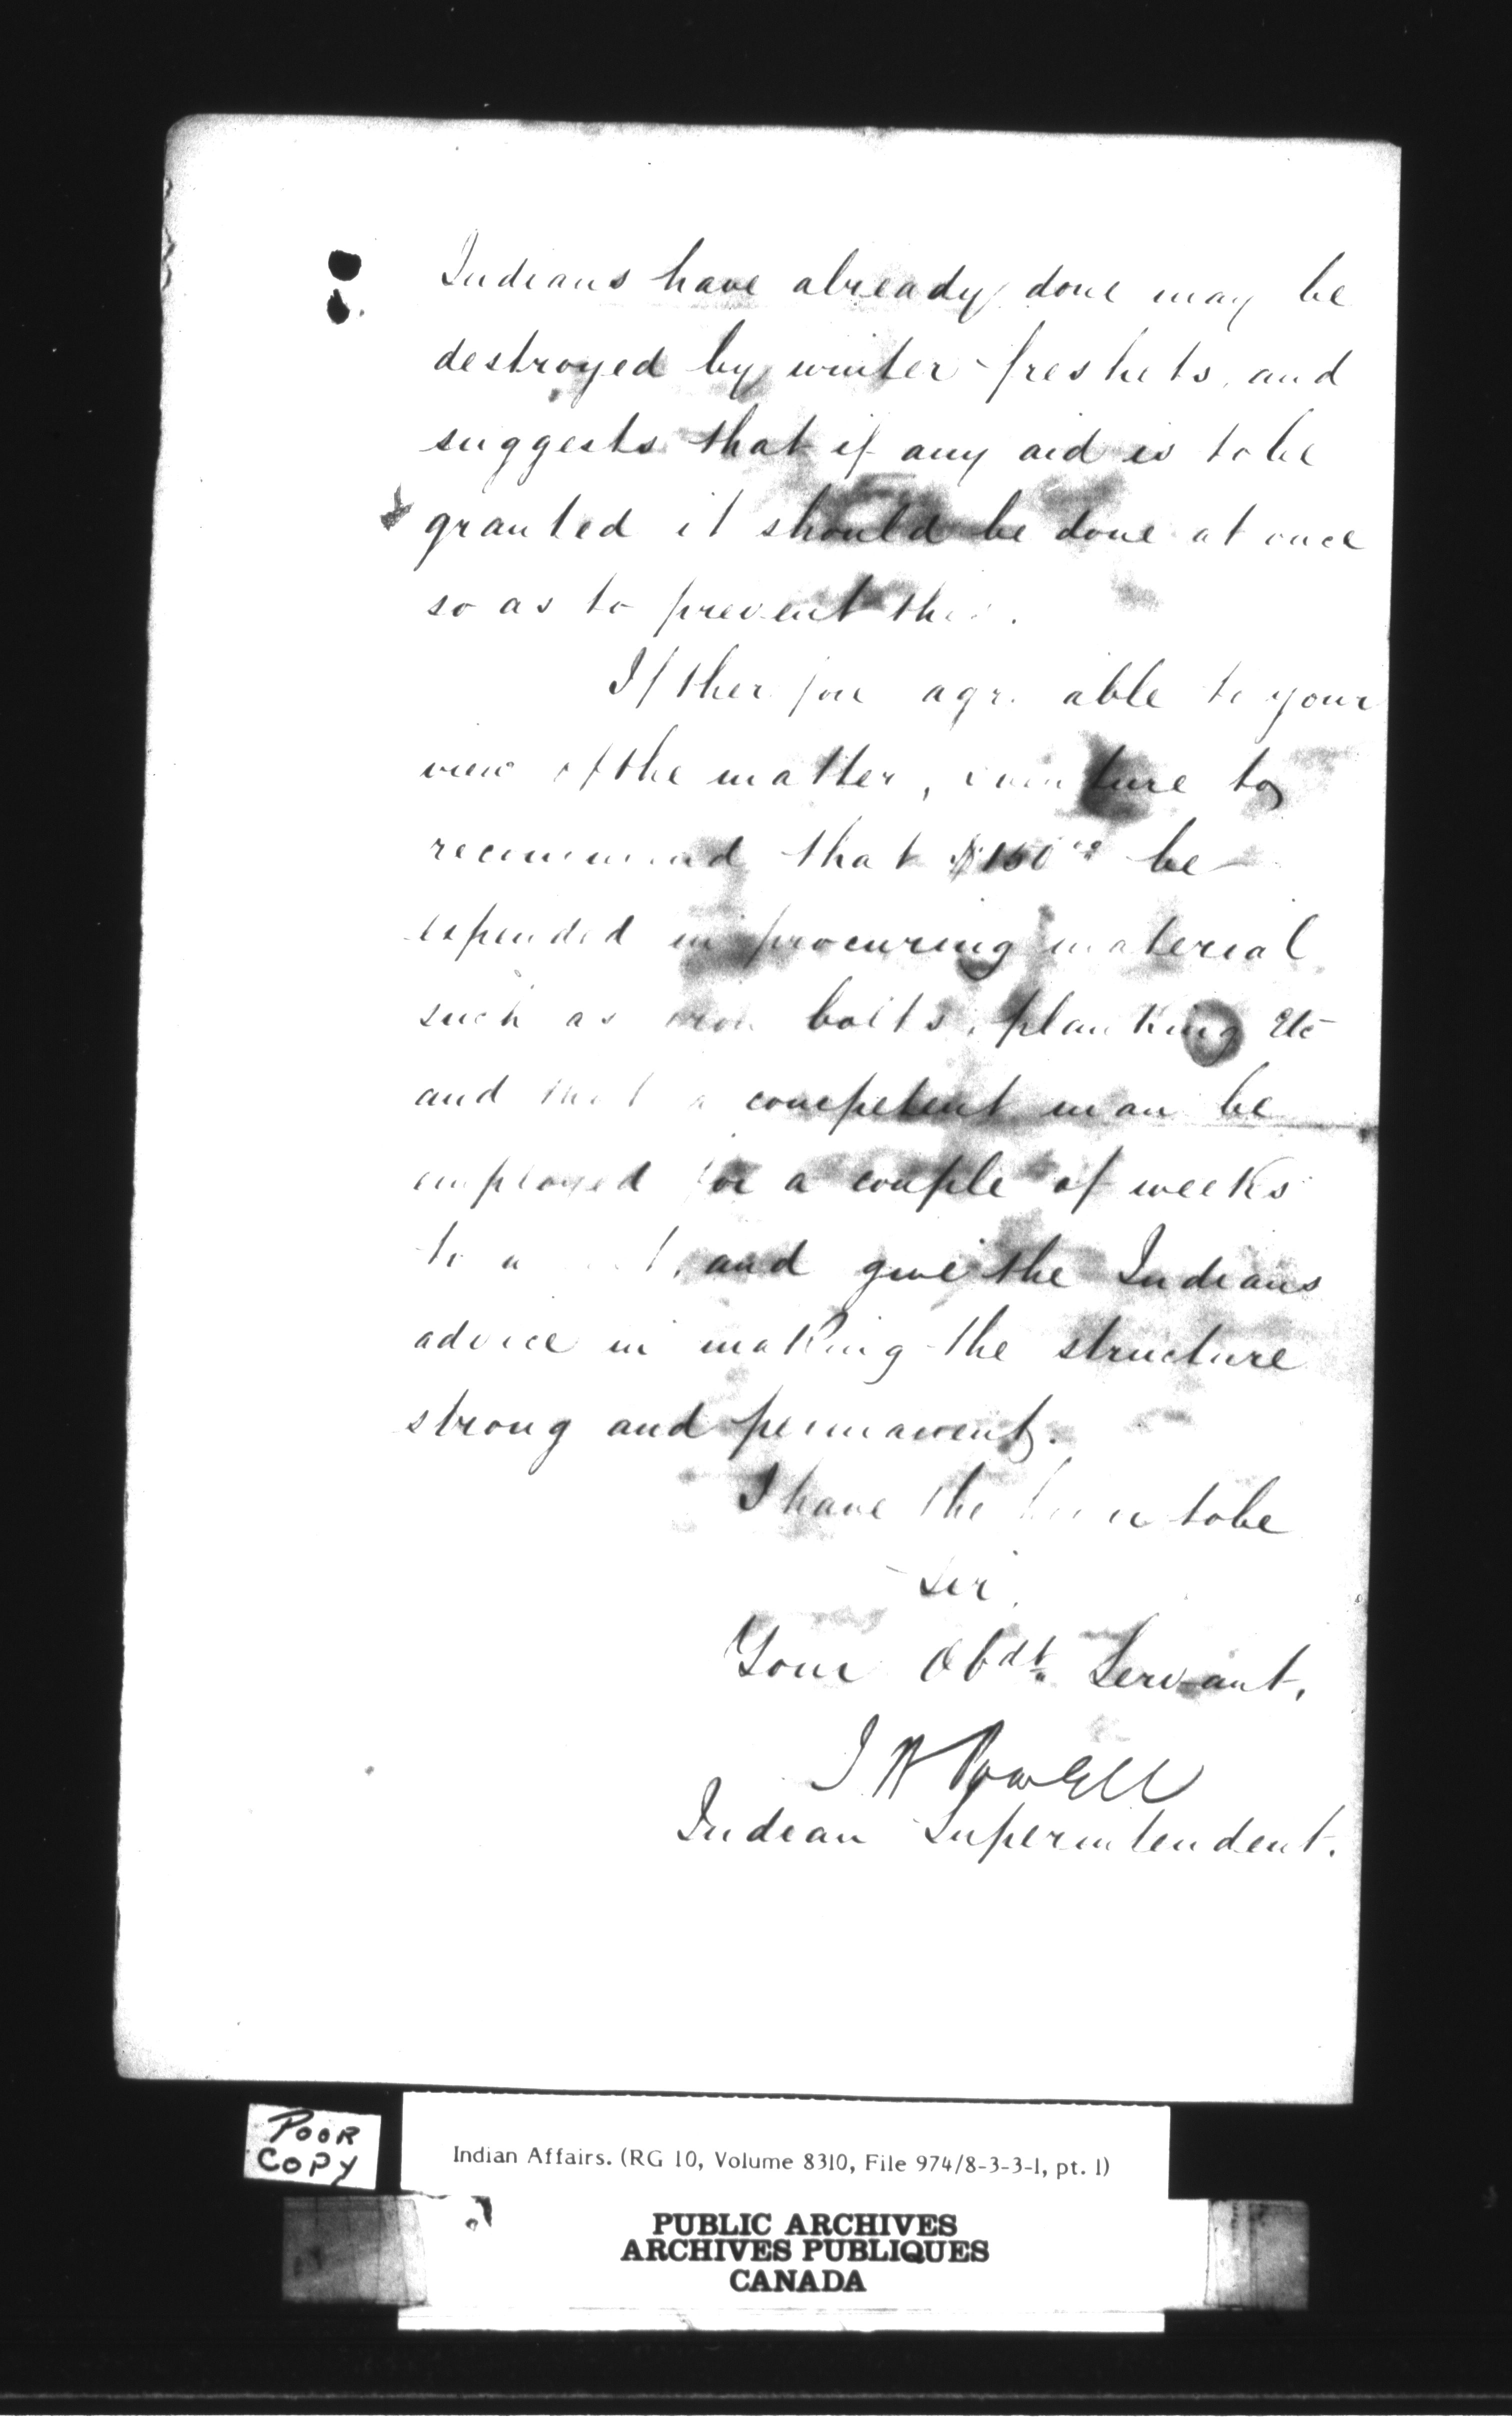 Indians have already done may be
destroyed by winter freshets, and
suggests that if any aid is to be
granted it should be done at once
so as to prevent this.
If therefore agreeable to your
view of the matter, venture to
recommend that $150.00 be
expended in procuring material
such as iron bolts, planking etc
and that a competent man be
employed for a couple of weeks
to and give the Indians
advice in making the structure
strong and permanent.
I have the honor to be
Sir,
Your Obdt. Servant,
I W Powell
Indian Superintendent.
POOR
COPY
Indian Affairs. (RG 10, Volume 8310, File 974/8-3-3-1, pt. 1)
PUBLIC ARCHIVES
ARCHIVES PUBLIQUES
CANADA